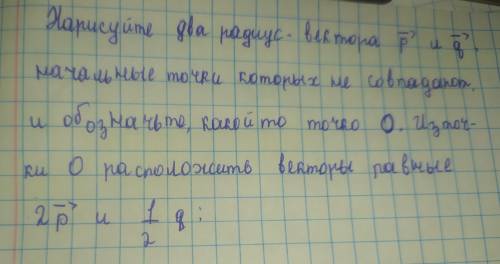 Нарисуйте два радиус-вектора p⃗ и q⃗,
начальные точки которых не совпадают,
и обозначьте, какой то точко O. Из точ-
ки O расположить векторы равные
2p⃗ и 1/2 q: